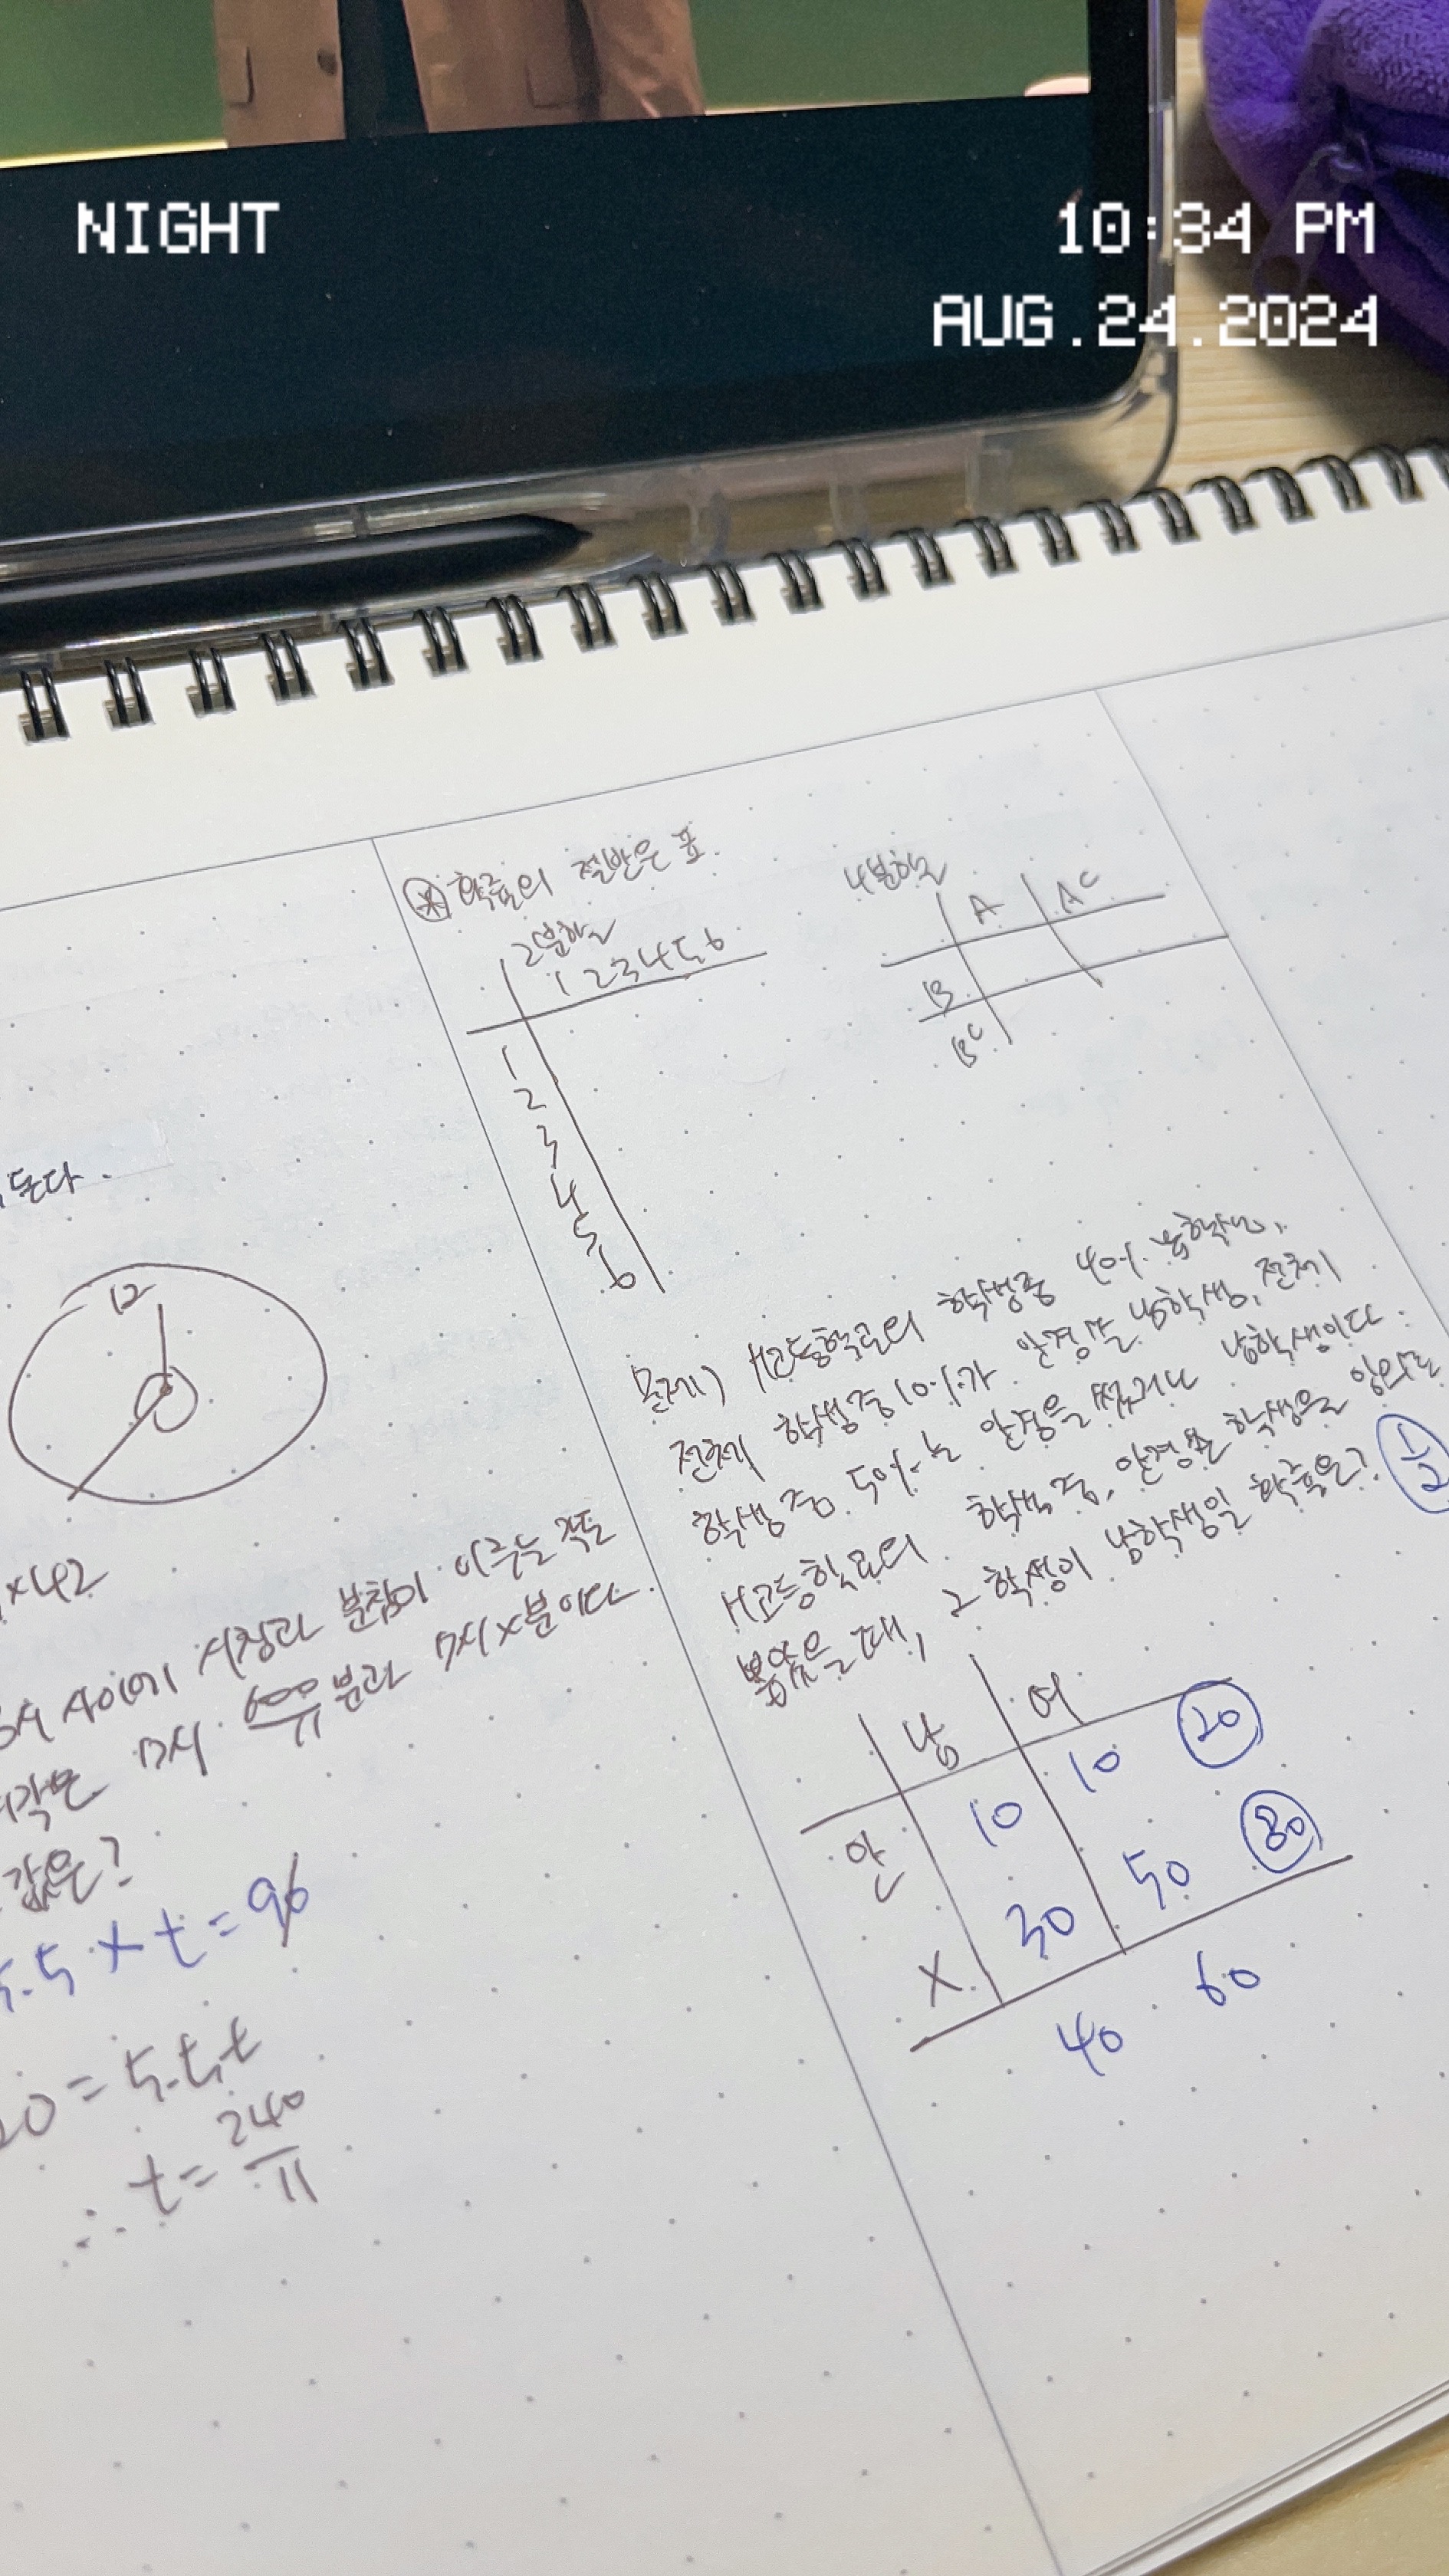 NIGHT
10:34 PM
AUG.24.2024
돈다.
12
×42
시침과 분침이 이루는 각도
7시 600/11분과 7시 x분이다.
각은
값은?
5.5 × t = 96
20 = 5.5t
∴ t = 240/11
확률의 절반은 표.
2분할
1 2 3 4 5 6
1
2
3
4
5
6
4분할
A A^c
B
B^c
문제) H고등학교의 학생중 40% 남학생,
전체 학생중 10%가 안경쓴 남학생, 전체
학생중 50%는 안경을 썼거나 남학생이다.
H고등학교의 학생중, 안경쓴 학생을 임의로
뽑았을 때, 그 학생이 남학생일 확률은? 1/2
남 여
안 10 10 20
X 30 50 80
40 60